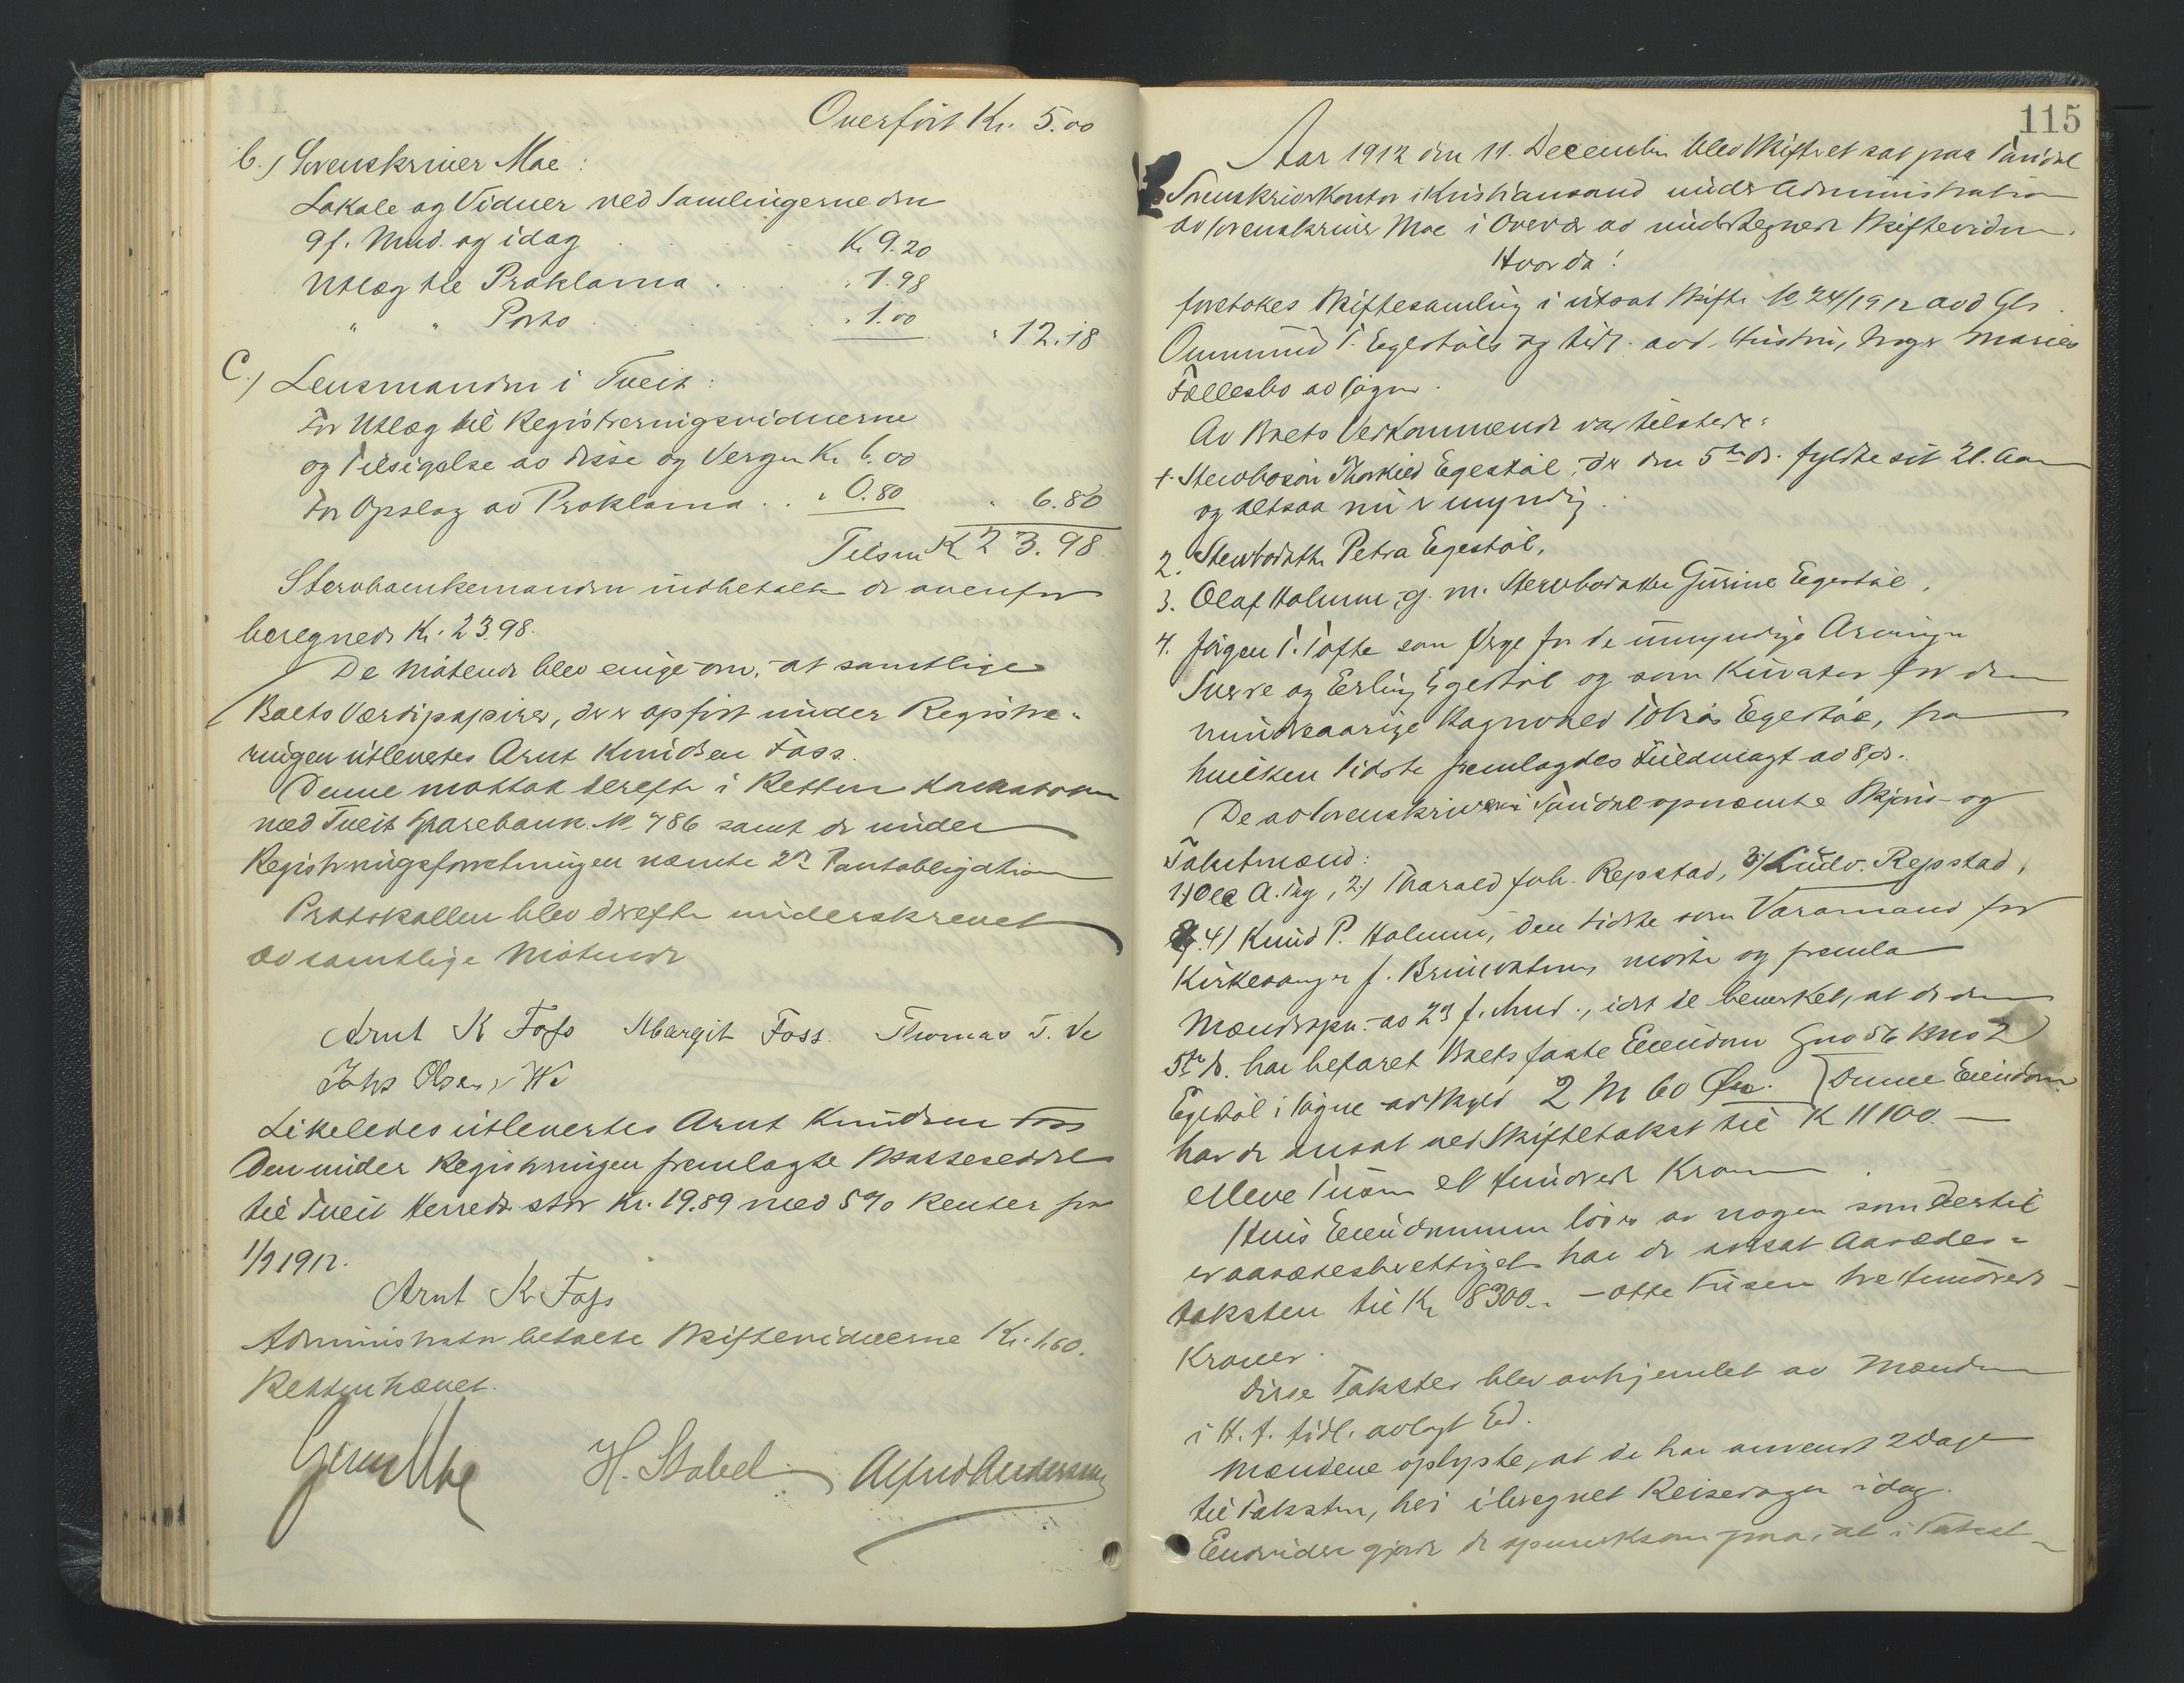 Overført Kr. 5.00
b.) Sorenskriver Moe:
Lokale og Vidner ved Samlingerne den
9 f. Mnd. og idag . . . Kr 9.20
Utlæg til Proklama . . . " 1.98
" " Porto . . . . " 1.00 " 12.18
C.) Lensmanden i Tveit:
For Utlæg til Registreringsvidnerne
og Tilsigelse av disse og Vergen Kr 6.00
For Opslag av Proklama . . " 0.80 " 6.80
Tilsm Kr 23.98
Stervboenkemanden indbetalte de ovenfor
beregnede Kr. 23.98.
De Møtende blev enige om, at samtlige
Boets Værdipapirer, der er opført under Registre-
ringen utlevertes Arnt Knudsen Foss.
Denne mottok derefter i Retten
med Tveit Sparebank No 786 samt de under
Registreringsforretningen nævnte 2de Pantobligation
Protokollen blev derefter underskrevet
av samtlige Møtende
Arnt K Foss Margit Foss. Thomas T. Ve
Johs Olsen Ve
Likeledes utlevertes Arnt Knudsen Foss
Den under Registreringen fremlagte
til Tveit Herred stor Kr. 19.89 med 5% Renter fra
1/9 1912.
Arnt K Foss
Administrator betalte Skiftevidnerne Kr. 1.60.
Retten hævet.
Moe H. Stabel Alfred Andersen
115
Aar 1912 den 11. December blev Skifteret sat paa
Sorenskriverkontor i Kristiansand under Administration
av sorenskriver Moe i Overvær av undertegnede Skiftevidner.
Hvorda!
foretokes Skiftesamling i utsat Skifte No 24/1912 avd Gbr.
Ommund T. Egestøls og tidl. avd. Hustru, Inger Maries
Fællesbo av Søgne.
Av Boets Vedkommende var tilstede:
1. Stervbosøn Thorkild Egestøl, der den 5te ds. fyldte sit 21. Aar
og altsaa nu er myndig.
2. Stervbodatter Petra Egestøl,
3. Olaf Holmen, g. m. Stervbodatter Gurine Egestøl,
4. Jørgen T. Tofte som Verge for de umyndige Arvinger
Sverre og Erling Egestøl og som Kurator for den
mindreaarige Ragnvald Tobias Egestøl, fra
hvilken sidste fremlagdes Fuldmagt av 8 ds.
De av Sorenskriveren i opnævnte Skjøns- og
Takstmænd:
1) Ole A. , 2) Tharald Joh. Repstad, 3) Ludv. Repstad,
og 4) Knud P. Holmen, den sidste som Varamand for
Kirkesanger J. møtte og fremla
Mændsopn. av 23 f. Mnd., idet de bemerket, at de den
5te ds. har befaret Boets faste Eiendom Gno 56 Bno 2
Egestøl i Søgne av Skyld 2 M 60 Øre. Denne Eiendom
har de ansat ved Skiftetakst til Kr 11100.—
elleve Tusen et hundrede Kroner.
Hvis Eiendommen løses av nogen som dertil
er aasædesberettiget har de ansat Aasædes-
taksten til Kr 8300.— - otte tusen tre hundrede -
Kroner.
Disse Takster blev avhjemlet av Mændene
i H. t. tidl. avlagt Ed.
Mændene oplyste, at de har anvendt 2 Dage
til Taksten, heri iberegnet Reisedagen idag.
Endvidere gjorde de opmerksom paa, at i